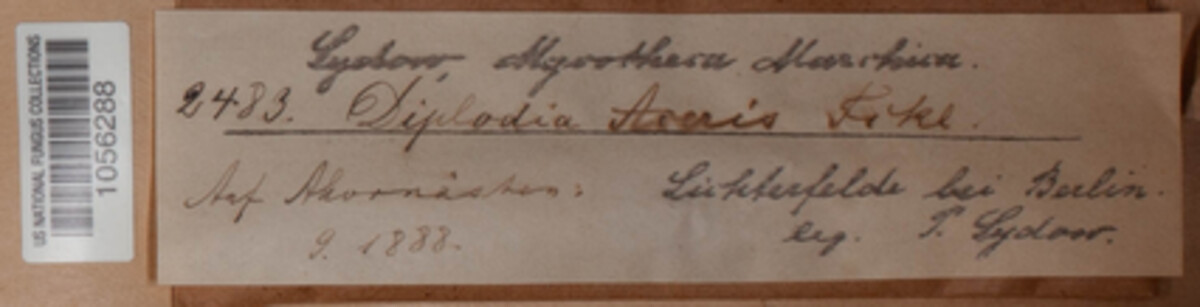 US NATIONAL FUNGUS COLLECTIONS
1056288
Sydow, Mycotheca Marchica.
2483. Diplodia Aceris Fckl.
Auf Ahornästen.
Lichterfelde bei Berlin.
9. 1888.
leg. P. Sydow.